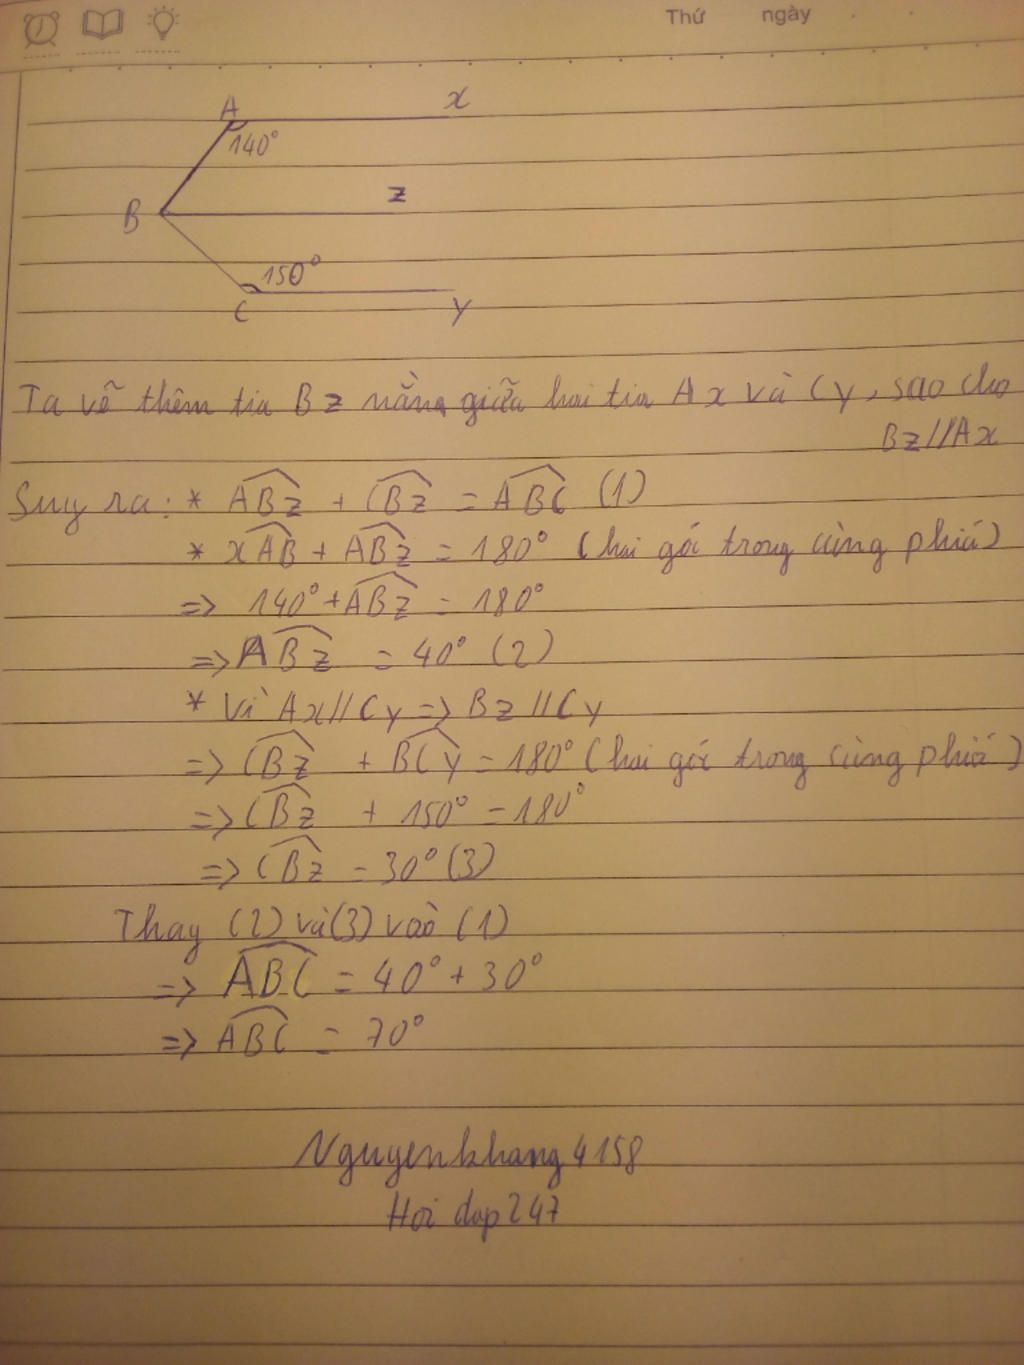 Thứ ngày
A x
140°
B z
150°
C y
Ta vẽ thêm tia Bz nằm giữa hai tia Ax và Cy, sao cho
Bz//Ax
Suy ra: * ABz + CBz = ABC (1)
* xAB + ABz = 180° (hai góc trong cùng phiá)
=> 140° + ABz = 180°
=> ABz = 40° (2)
* Vì Ax//Cy => Bz//Cy
=> CBz + BCy = 180° (hai góc trong cùng phiá)
=> CBz + 150° = 180°
=> CBz = 30° (3)
Thay (2) và (3) vào (1)
=> ABC = 40° + 30°
=> ABC = 70°
Nguyenkhang4158
Hoi dap247